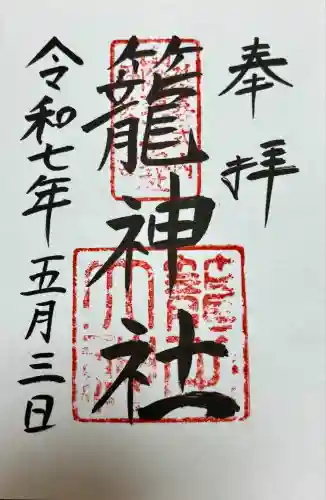 奉拝
籠神社
令和七年五月三日